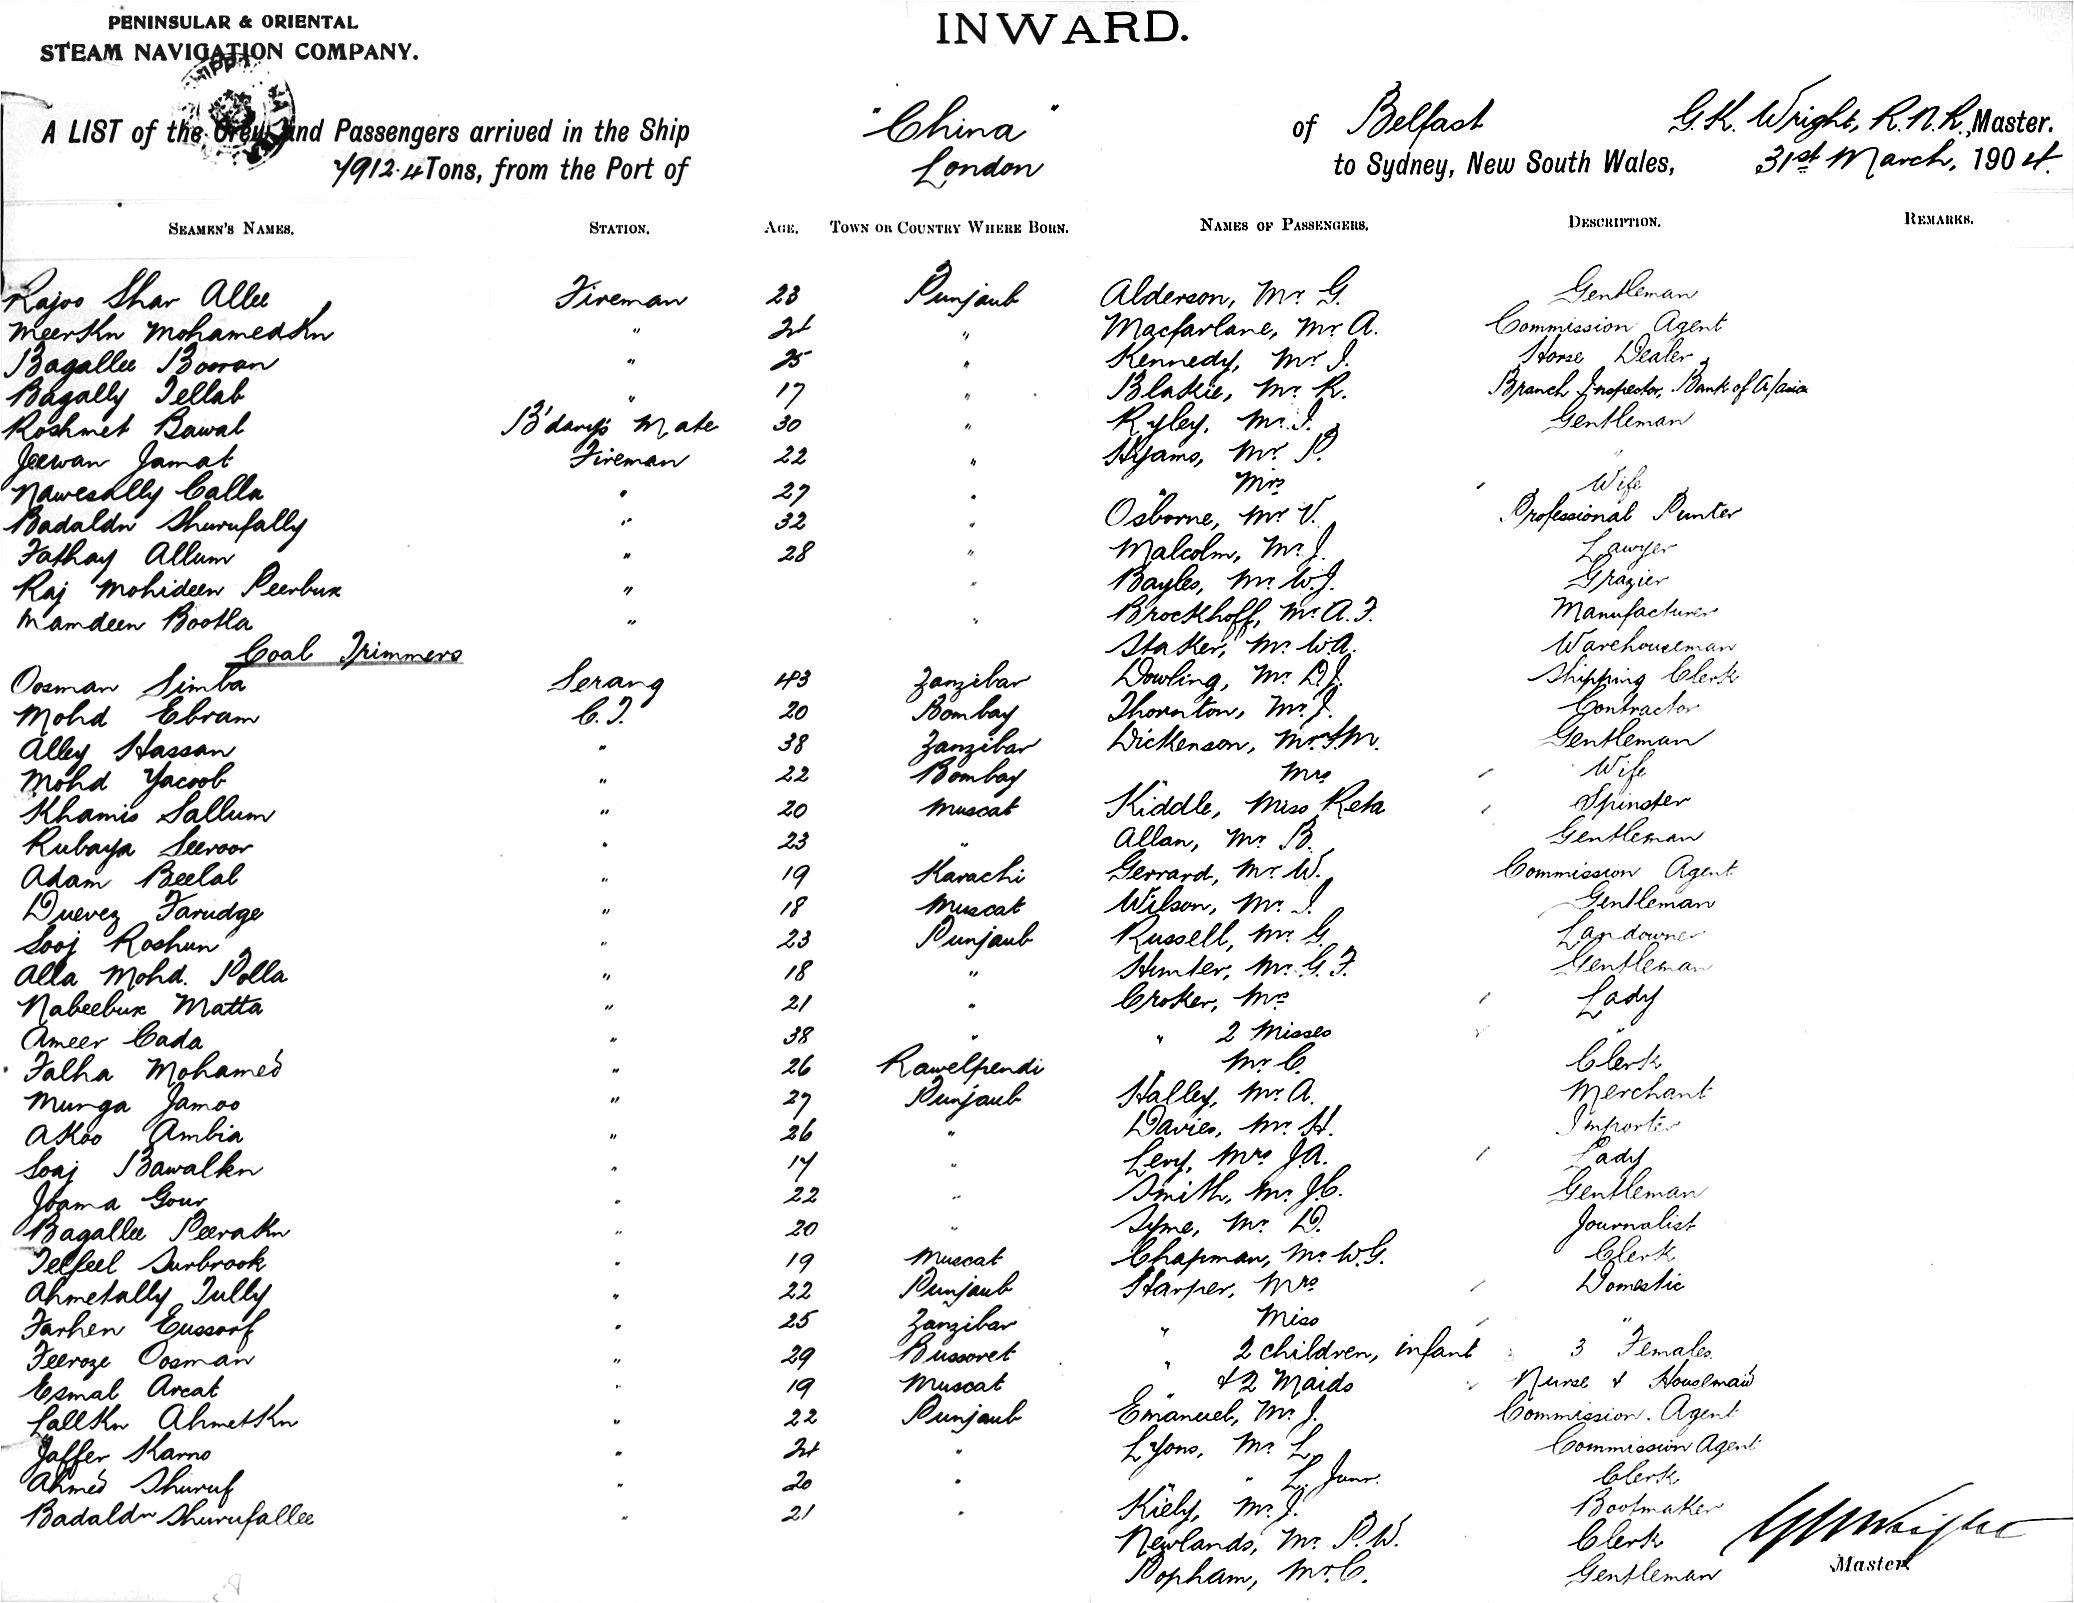 PENINSULAR & ORIENTAL
STEAM NAVIGATION COMPANY.
INWARD.
A LIST of the Crew and Passengers arrived in the Ship "China" of Belfast G.K. Wright, R.N.R., Master.
7912.4 Tons, from the Port of London to Sydney, New South Wales, 31st March, 1904.
SEAMEN'S NAMES. STATION. AGE. TOWN OR COUNTRY WHERE BORN. NAMES OF PASSENGERS. DESCRIPTION. REMARKS.
Rajoo Shar Allee Fireman 23 Punjaub Alderson, Mr. G. Gentleman
MeerKn MohamedKn " 24 " Macfarlane, Mr. A. Commission Agent
Bagallee Booran " 25 " Kennedy, Mr. J. Horse Dealer
Bagally Tellab " 17 " Blakie, Mr. R. Branch Inspector, Bank of A/asia
Roshmet Bawal B'dary's Mate 30 " Ryley, Mr. J. Gentleman
Jeewan Jamat Fireman 22 " Hyams, Mr. P. "
Nawesally Calla " 27 " " Mrs Wife
Badaldn Shurufally " 32 " Osborne, Mr. V. Professional Punter
Fathay Allum " 28 " Malcolm, Mr. J. Lawyer
Raj Mohideen Peerbux " " Bayles, Mr. W.J. Grazier
Mamdeen Bootla " " Brockhoff, Mr. A.F. Manufacturer
Coal Trimmers Staker, Mr. W.A. Warehouseman
Oosman Simba Serang 43 Zanzibar Dowling, Mr. D.J. Shipping Clerk
Mohd Ebram C.T. 20 Bombay Thornton, Mr. J. Contractor
Alley Hassan " 38 Zanzibar Dickenson, Mr. F.M. Gentleman
Mohd Yacoob " 22 Bombay " Mrs Wife
Khamis Sallum " 20 Muscat Kiddle, Miss Reta Spinster
Rubaya Seeroor " 23 " Allan, Mr. B. Gentleman
Adam Beelal " 19 Karachi Gerrard, Mr. W. Commission Agent
Duevez Farudge " 18 Muscat Wilson, Mr. J. Gentleman
Sooj Roshun " 23 Punjaub Russell, Mr. G. Landowner
Alla Mohd. Polla " 18 " Hunter, Mr. G.F. Gentleman
Nabeebux Matta " 21 " Croker, Mrs Lady
Ameer Cada " 38 " " 2 Misses "
Falha Mohamed " 26 Rawelpendi " Mr. C. Clerk
Munga Jamoo " 27 Punjaub Halley, Mr. A. Merchant
Akoo Ambia " 26 " Davies, Mr. H. Importer
Soaj Bawalkn " 17 " Levy, Mrs J.A. Lady
Joama Gour " 22 " Smith, Mr. J.C. Gentleman
Bagallee PeeraKn " 20 " Syme, Mr. D. Journalist
Telfeel Surbrook " 19 Muscat Chapman, Mr. W.G. Clerk
Ahmetally Tully " 22 Punjaub Harper, Mrs Domestic
Farhen Eussorf " 25 Zanzibar " Miss "
Feeroze Oosman " 29 Bussoret " 2 children, infant 3 Females
Esmal Arcat " 19 Muscat " & 2 Maids Nurse & Housemaid
LallKn AhmetKn " 22 Punjaub Emanuel, Mr. J. Commission Agent
Jaffer Karno " 24 " Lyons, Mr. L. Commission Agent
Ahmed Shuruf " 20 " " " L. Junr. Clerk
Badaldn Shurufallee " 21 " Kiely, Mr. J. Bootmaker
Newlands, Mr. P.W. Clerk
Popham, Mr. C. Gentleman
GKWright
Master